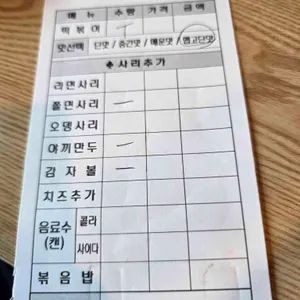 메뉴 수량 가격 금액
떡볶이
맛선택 단맛 / 중간맛 / 매운맛 / 맵고단맛
♠사리추가
라면사리
쫄면사리 一
오뎅사리
야끼만두 一
감자볼 一
치즈추가
음료수 (캔) 콜라
사이다
볶음밥